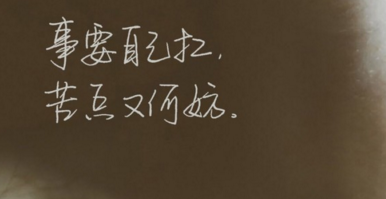 事要自己扛，
苦点又何妨。